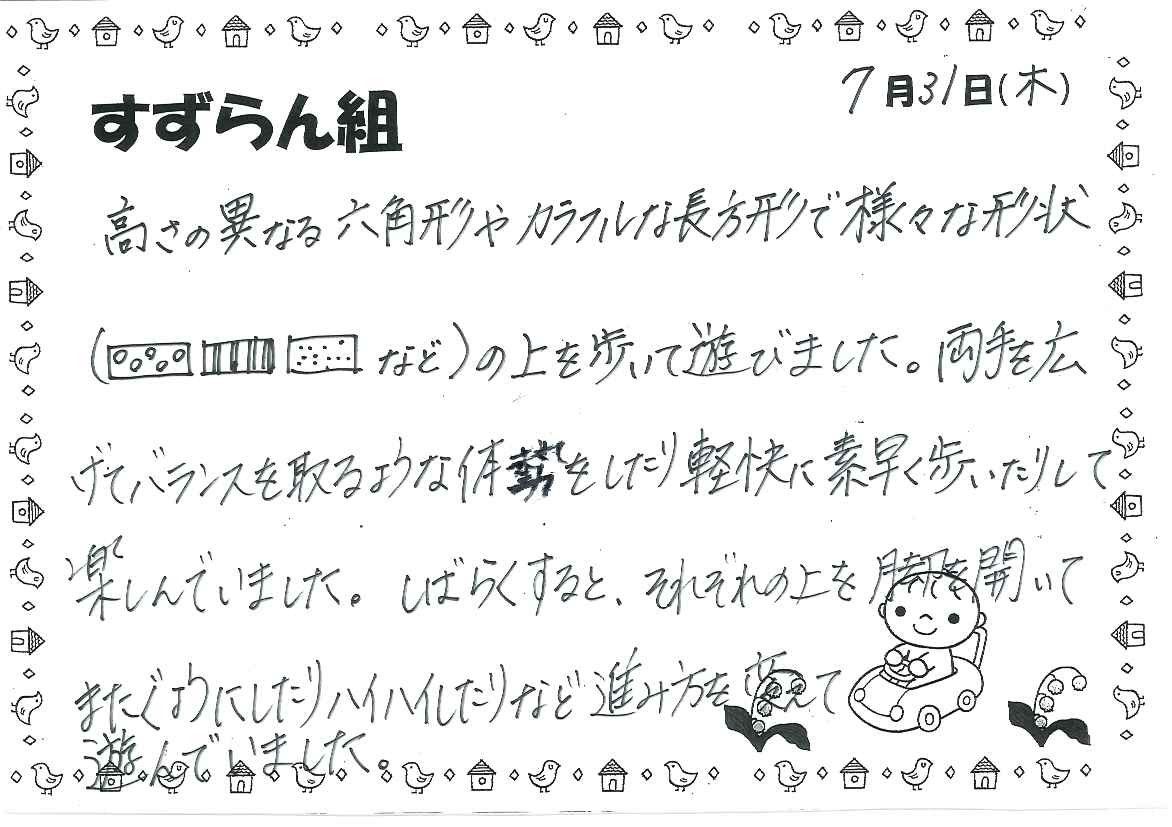 すずらん組
7月31日(木)
高さの異なる六角形やカラフルな長方形で様々な形状
(など)の上を歩いて遊びました。両手を広
げてバランスを取るような体勢をしたり軽快に素早く歩いたりして
楽しんでいました。しばらくすると、それぞれの上を脚を開いて
またぐようにしたりハイハイしたりなど進み方を変えて
遊んでいました。